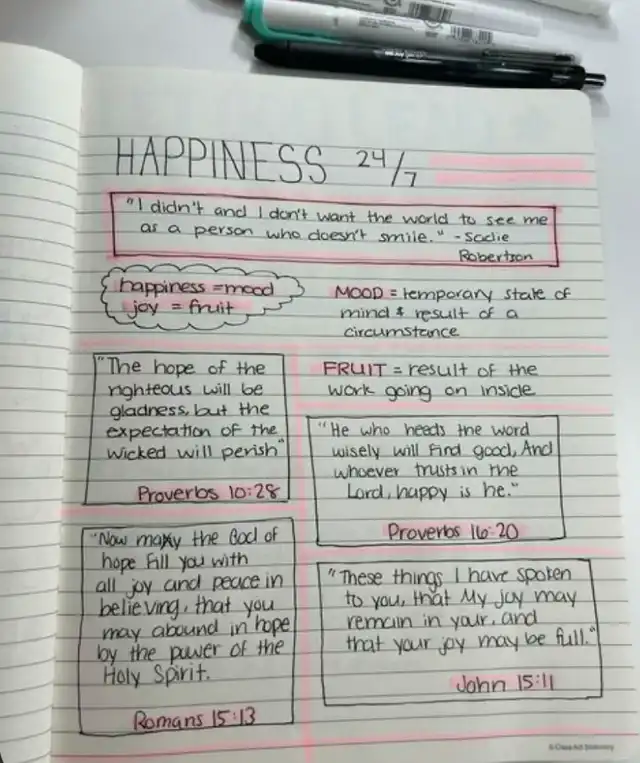 HAPPINESS 24/7
"I didn't and I don't want the world to see me
as a person who doesn't smile." -Sadie
Robertson
happiness = mood
joy = fruit
MOOD = temporary state of
mind & result of a
circumstance
FRUIT = result of the
work going on inside
"The hope of the
righteous will be
gladness, but the
expectation of the
wicked will perish"
Proverbs 10:28
"He who heeds the word
wisely will find good, And
whoever trusts in the
Lord, happy is he."
Proverbs 16:20
"Now may the God of
hope fill you with
all joy and peace in
believing, that you
may abound in hope
by the power of the
Holy Spirit.
Romans 15:13
"These things I have spoken
to you, that My joy may
remain in your, and
that your joy may be full."
John 15:11